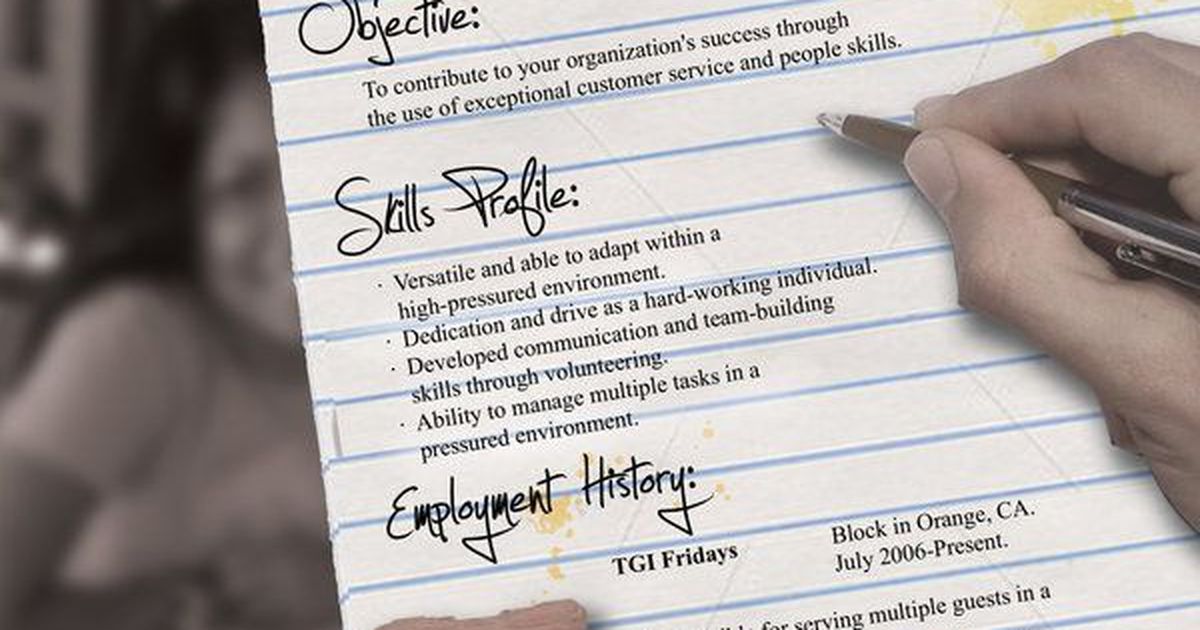 Objective:
To contribute to your organization's success through
the use of exceptional customer service and people skills.
Skills Profile:
· Versatile and able to adapt within a
high-pressured environment.
· Dedication and drive as a hard-working individual.
· Developed communication and team-building
skills through volunteering.
· Ability to manage multiple tasks in a
pressured environment.
Employment History:
TGI Fridays
Block in Orange, CA.
July 2006-Present.
for serving multiple guests in a